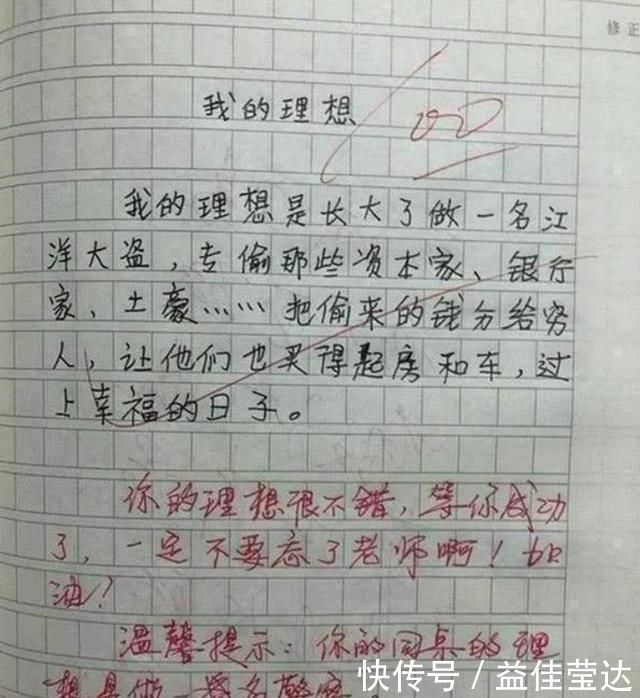 修正
我的理想
我的理想是长大了做一名江
洋大盗，专偷那些资本家、银行
家、土豪……把偷来的钱分给穷
人，让他们也买得起房和车，过
上幸福的日子。
你的理想很不错，等你成功
了，一定不要忘了老师啊！加
油！
温馨提示：你的同桌的理
想是做一名警察
快传号／益佳莹达